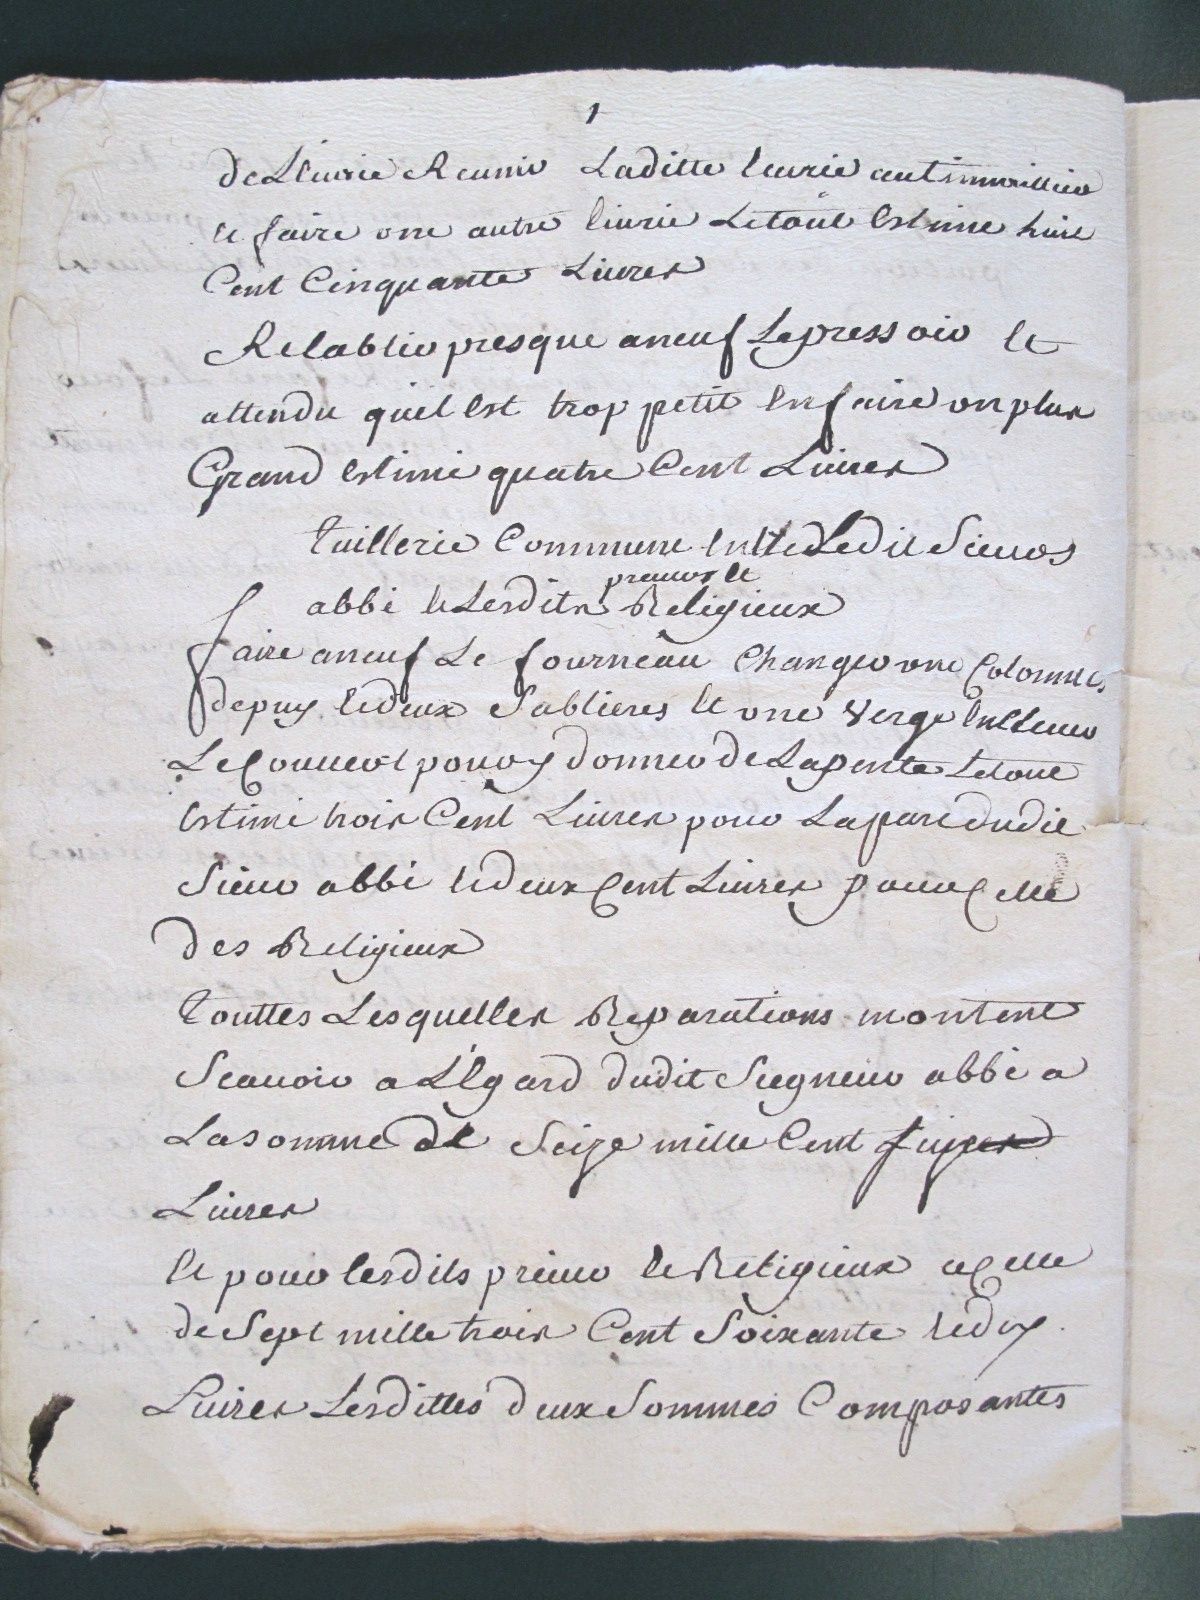 1
de Lecurie Reunir Laditte Ecurie
et faire une autre Ecurie Letout Estimé huit
Cent Cinquante Livres
Retablir presque aneuf Lepressoir et
attendu quil Est trop petit Enfaire unplus
Grand Estimé quatre Cent Livres
tuillerie Commune Entre Ledit Sieur
prieur et
abbé et Lesdits Religieux
faire aneuf Le fourneau Changer une Colonne
depuy et deux Sablieres et une Verge
Le Couvert pour y donner de Lapente Letout
Estimé trois Cent Livres pour Lapart dudit
Sieur abbé et deux Cent Livres pour Celle
des Religieux
touttes Lesquelles Reparations montent
Scauoir a L'Egard dudit Seigneur abbé a
Lasomme de Seize mille Cent
Livres
Et pour lesdits prieur et Religieux a Celle
de Sept mille trois Cent Soixante et dix
Livres Lesdittes deux Sommes Composantes